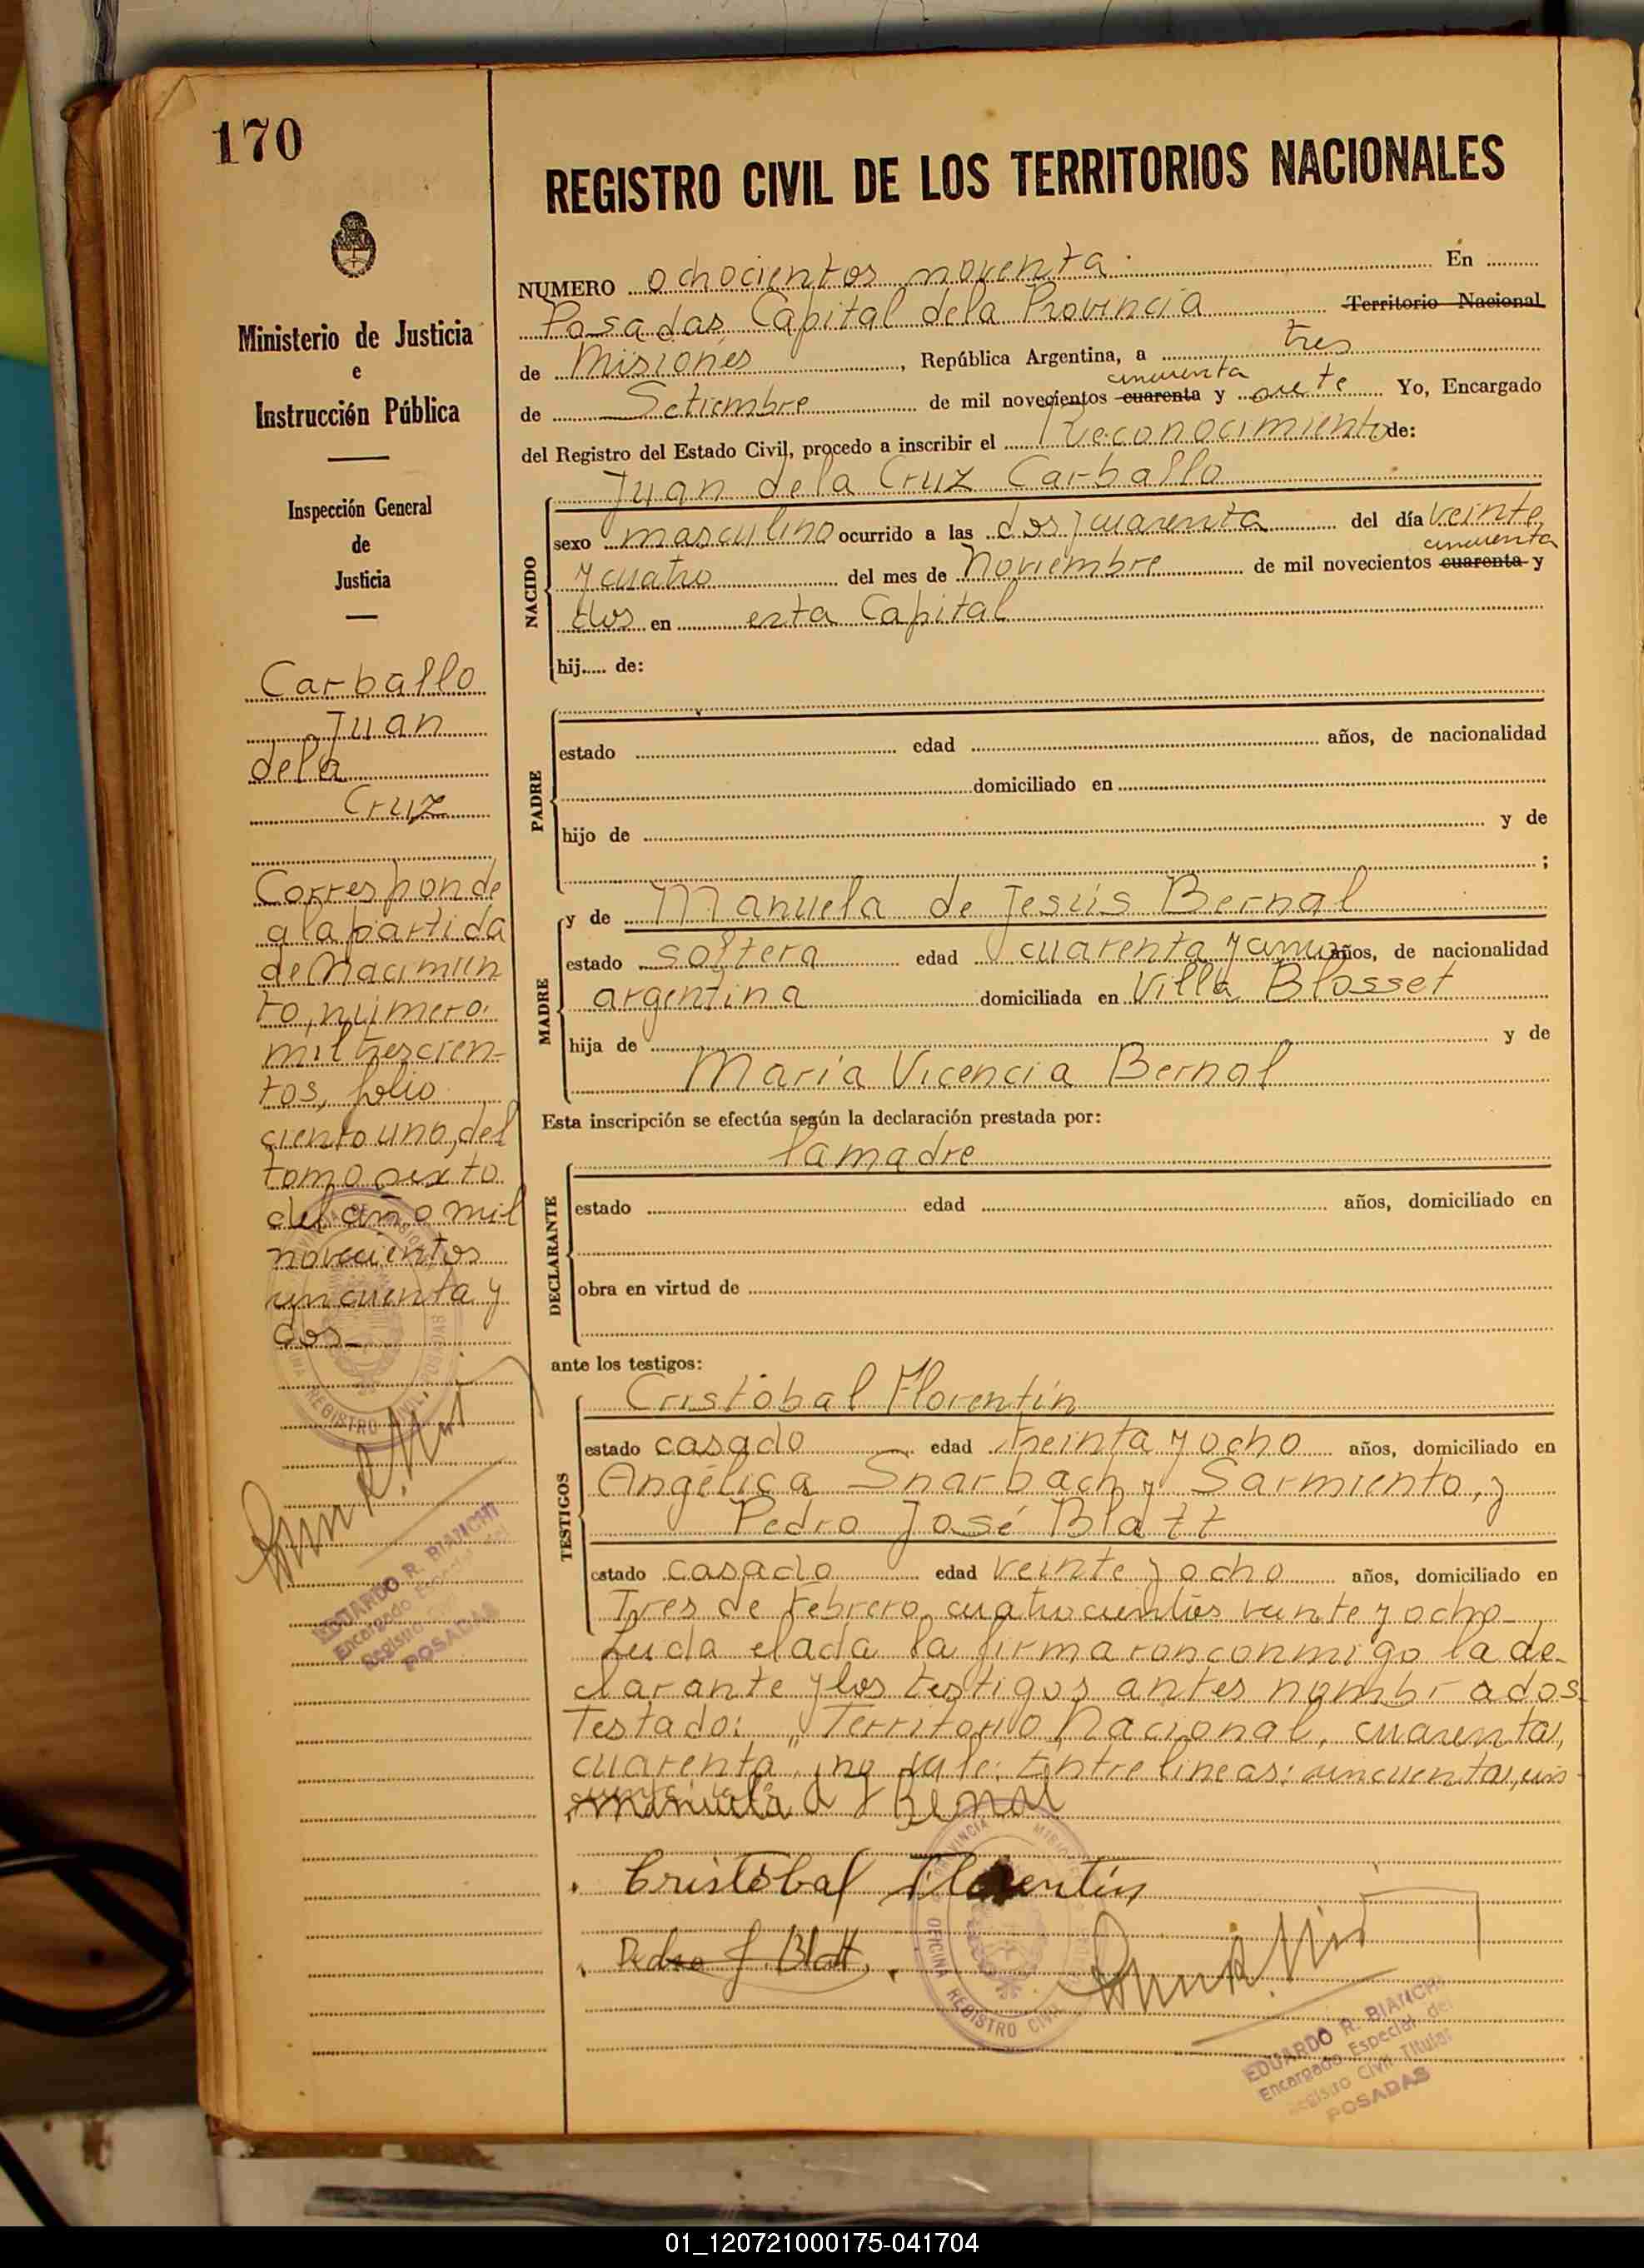 170
Ministerio de Justicia
e
Instrucción Pública
Inspección General
de
Justicia
Carballo
Juan
de la
Cruz
Corresponde
a la partida
de Nacimien
to, número
mil trescien-
tos, folio
ciento uno, del
tomo sexto
del año mil
novecientos
cincuenta y
dos
EDUARDO R. BIANCHI
Encargado Especial del
Registro Civil
POSADAS
REGISTRO CIVIL DE LOS TERRITORIOS NACIONALES
NUMERO ochocientos noventa. En
Posadas Capital de la Provincia Territorio Nacional
de Misiones, República Argentina, a tres
cincuenta
de Setiembre de mil novecientos cuarenta y siete Yo, Encargado
del Registro del Estado Civil, procedo a inscribir el Reconocimiento de:
Juan de la Cruz Carballo
NACIDO
sexo masculino ocurrido a las dos y cuarenta del día veinte
cincuenta
y cuatro del mes de Noviembre de mil novecientos cuarenta y
dos en esta Capital
hij..... de:
PADRE
estado edad años, de nacionalidad
domiciliado en
hijo de y de
;
MADRE
y de Manuela de Jesús Bernal
estado soltera edad cuarenta y años, de nacionalidad
argentina domiciliada en Villa Blosset
hija de y de
María Vicencia Bernal
Esta inscripción se efectúa según la declaración prestada por:
la madre
DECLARANTE
estado edad años, domiciliado en
obra en virtud de
ante los testigos:
TESTIGOS
Cristóbal Florentín
estado casado edad treinta y ocho años, domiciliado en
Angélica Snarbach y Sarmiento, y
Pedro José Blatt
estado casado edad veinte y ocho años, domiciliado en
Tres de Febrero cuatrocientos veinte y ocho
Leida el acta la firmaron conmigo la de-
clarante y los testigos antes nombrados.
Testado: "Territorio Nacional, cuarenta,
cuarenta", no vale: Entre lineas: cincuenta, cin
cuenta: vale
Manuela d J Bernal
Cristóbal Florentín
Pedro J. Blatt
PROVINCIA MISIONES
OFICINA REGISTRO CIVIL
EDUARDO R. BIANCHI
Encargado Especial del
Registro Civil Titular
POSADAS
01_120721000175-041704